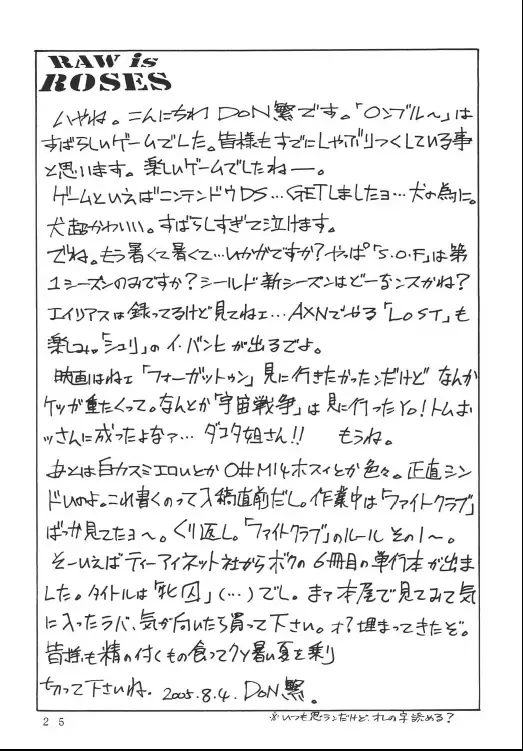 RAW is
ROSES
いやね。こんにちわ DoN繁です。「ロンブル〜」は
すばらしいゲームでした。皆様もすでにしゃぶりつくしている事
と思います。楽しいゲームでしたねー。
ゲームといえばニンテンドウDS…GETしましたョ…犬の為に。
犬超かわいい。すばらしすぎて泣けます。
でね。もう暑くて暑くて…いかがですか?やっぱ「S.O.F」は第
1シーズンのみですか?シールド新シーズンはどーなンスかね?
エイリアスは録ってるけど見てねェ…AXNでやる「LOST」も
楽しみ。「シュリ」のイ・バンヒが出るでよ。
映画はねェ「フォーガットゥン」見に行きたかったンだけど なんか
ケツが重たくって。なんとか「宇宙戦争」は見に行ったYo!トムお
ッさんに成ったよなァ… ダコタ姐さん!! もうね。
あとは白カスミエロいとか O#M14ホスィとか色々。正直シン
ドいのよ。これ書くのって入稿直前だし。作業中は「ファイトクラブ」
ばっか見てたョ〜。くり返し。「ファイトクラブ」のルール その1〜。
そーいえばティーアイネット社からボクの6冊目の単行本が出ま
した。タイトルは「牝囚」(…)でし。まァ本屋で見てみて気
に入ったラバ、気が向いたら買って下さい。オ?埋まってきたぞ。
皆様も精の付くもの食ってクソ暑い夏を乗り
切って下さいね。2005.8.4. DoN繁。
25
※いつも思うンだけど、オレの字読める?